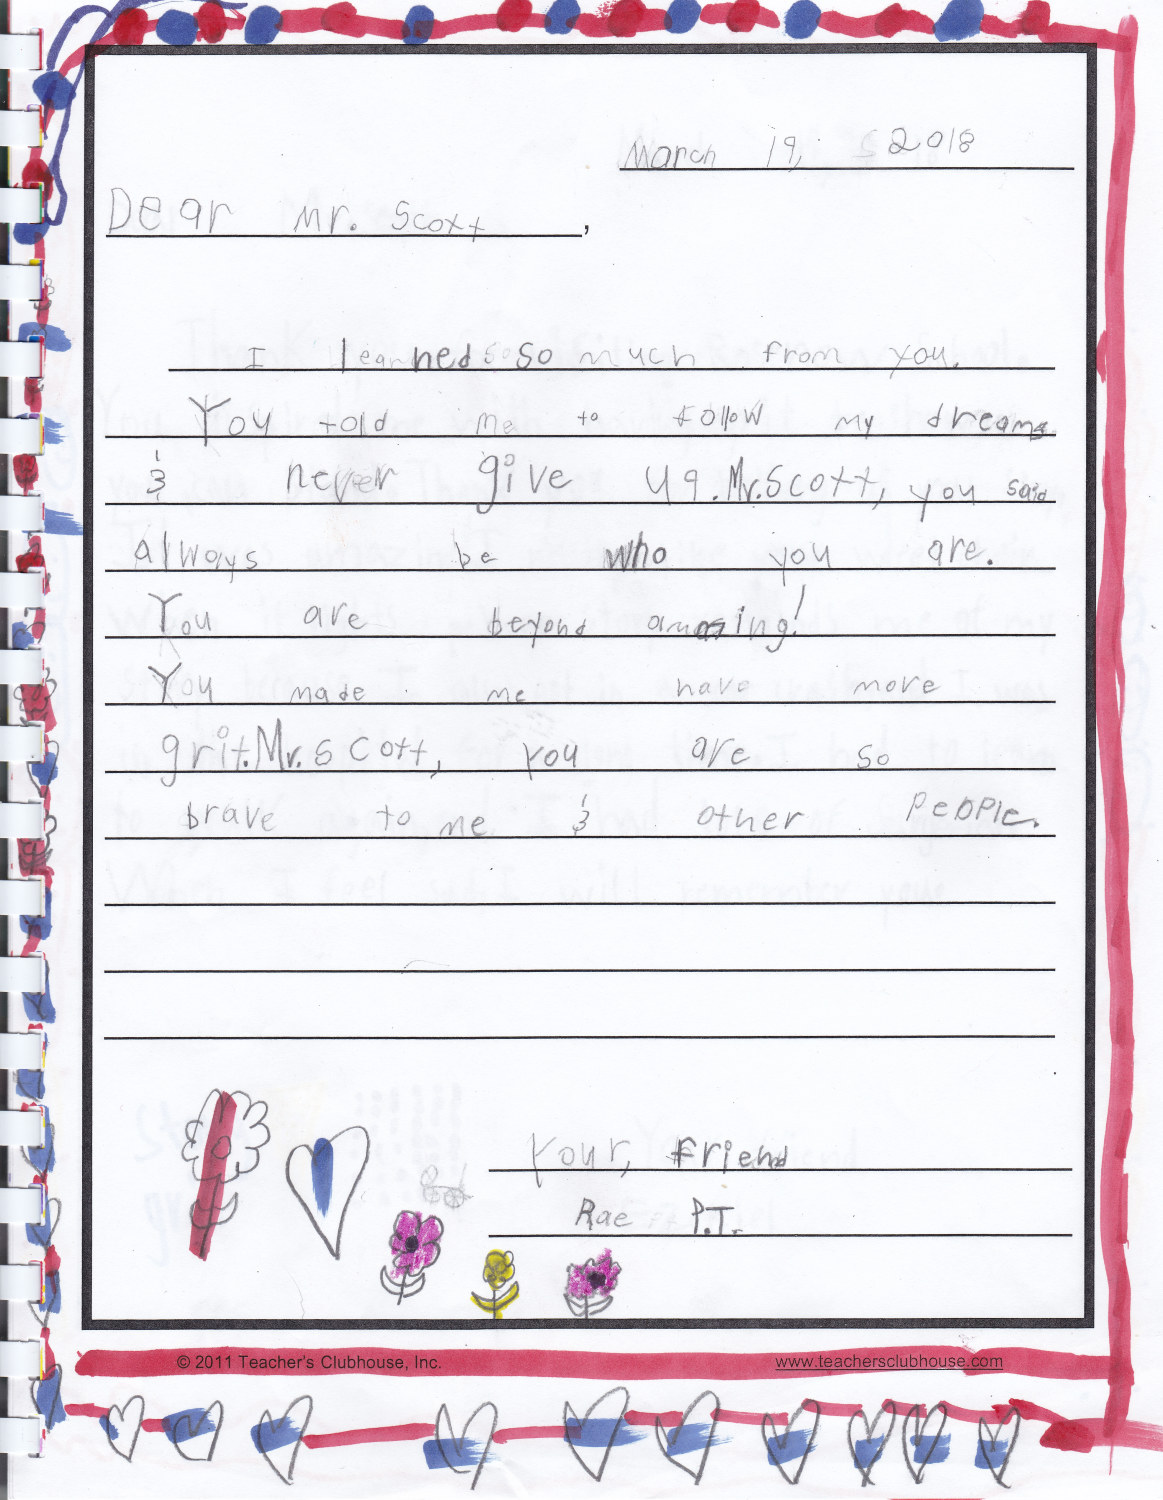 March 19, 2018
Dear Mr. Scott,
I learned so so much from you.
You told me to follow my dreams
& never give up. Mr. Scott, you said
always be who you are.
You are beyond amazing!
You made me have more
grit. Mr. Scott, you are so
brave to me & other people.
Your, friend
Rae P.T.
© 2011 Teacher's Clubhouse, Inc. www.teachersclubhouse.com